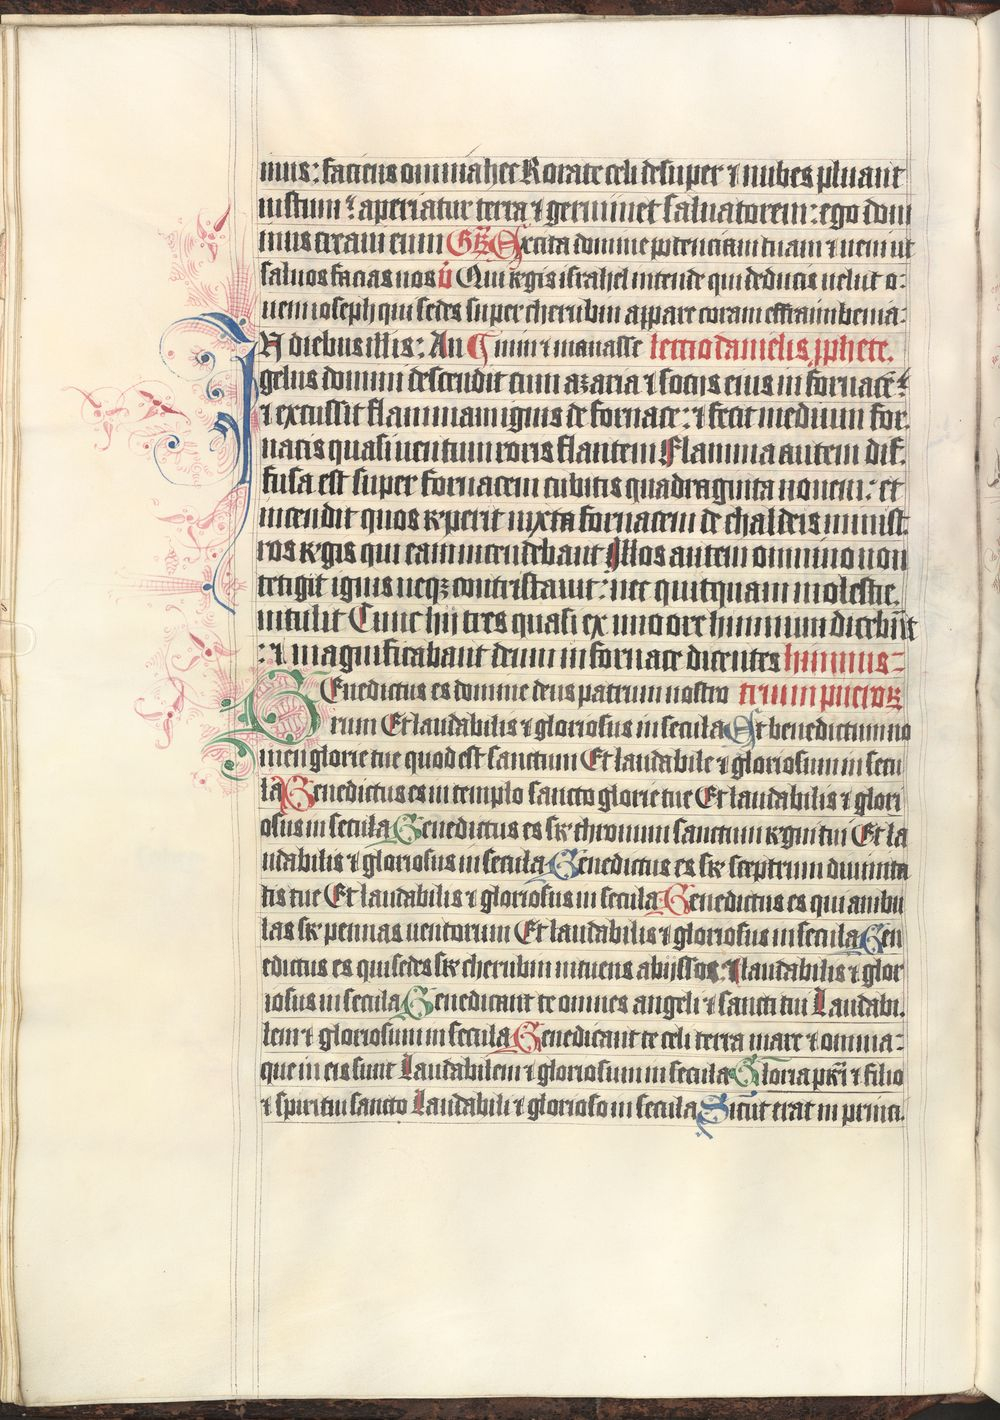 nus: faciens omnia hec Rorate celi desuper ⁊ nubes pluant
iustum: aperiatur terra ⁊ germinet saluatorem: ego domi
nus creaui eum Gr̄ Excita domine potenciam tuam ⁊ ueni ut
saluos facias nos v̄ Qui regis israhel intende qui deducis uelut o:
uem ioseph qui sedes super cherubin appare coram effraim benia:
N diebus illis: An C min ⁊ manasse lectio danielis ꝓphete.
gelus domini descendit cum azaria ⁊ sociis eius in fornacē:
⁊ excussit flammam ignis de fornace: ⁊ fecit medium for.
nacis quasi uentum roris flantem Flamma autem dif.
fusa est super fornacem cubitis quadraginta nouem: et
incendit quos reperit iuxta fornacem de chaldeis minist.
ros regis qui eam incendebant Illos autem omnino non
tetigit ignis neqꝫ contristauit: nec quitquam molestie.
intulit Tunc hii tres quasi ex uno ore himnum dicebāt
: ⁊ magnificabant deum in fornace dicentes himnus:
Benedictus es domine deus patrum nostro trium pueroꝝ
rum Et laudabilis ⁊ gloriosus in secula Et benedictum no
men glorie tue quod est sanctum Et laudabile ⁊ gloriosum in secu
la Benedictus es in templo sancto glorie tue Et laudabilis ⁊ glori
osus in secula Benedictus es sr̄ thronum sanctum regni tui Et la
udabilis ⁊ gloriosus in secula Benedictus es sr̄ sceptrum diuinita
tis tue Et laudabilis ⁊ gloriosus in secula Benedictus es qui ambu
las sr̄ pennas uentorum Et laudabilis ⁊ gloriosus in secula Ben
edictus es qui sedes sr̄ cherubin intuens abyssos. ⁊ laudabilis ⁊ glor
iosus in secula Benedicant te omnes angeli ⁊ sancti tui Laudabi.
lem ⁊ gloriosum in secula Benedicant te celi terra mare ⁊ omnia:
que in eis sunt Laudabilem ⁊ gloriosum in secula Gloria pr̄i ⁊ filio
⁊ spiritui sancto Laudabili ⁊ glorioso in secula Sicut erat in princi.